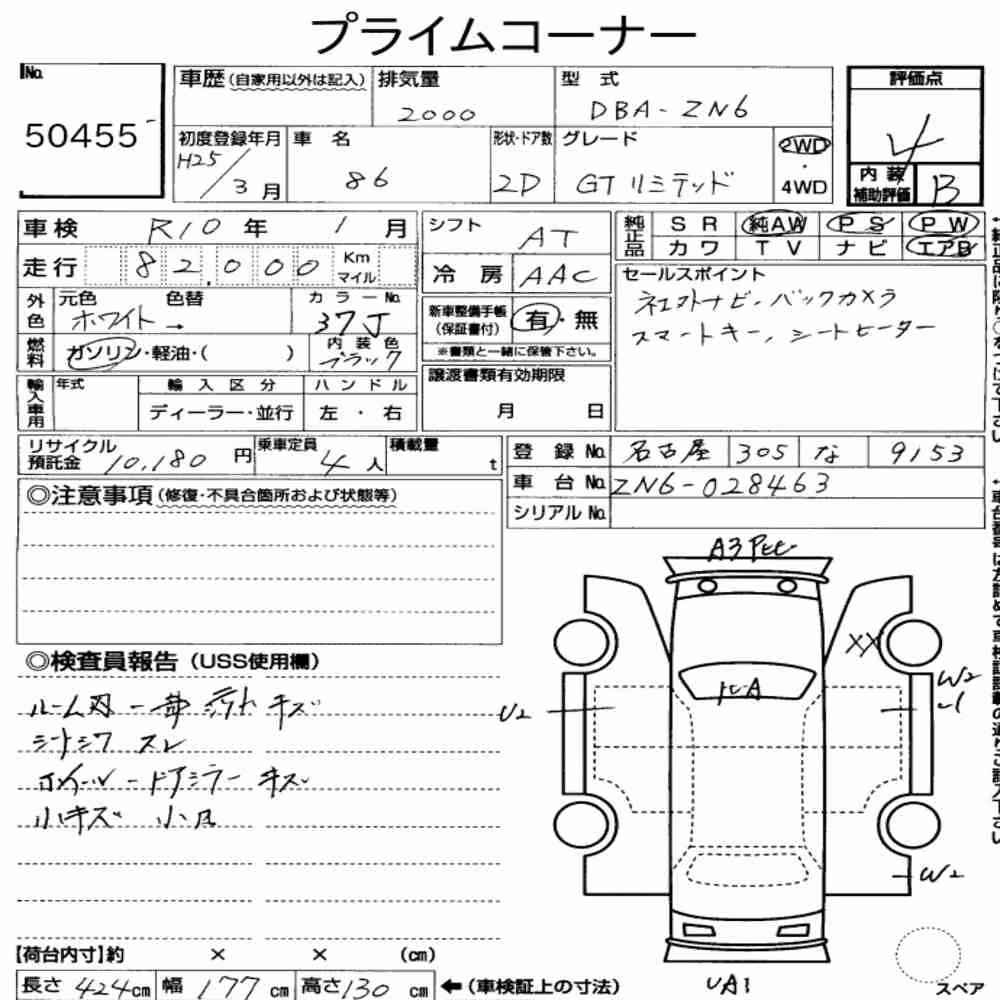 プライムコーナー
No.
50455
車歴 (自家用以外は記入)
排気量
2000
型 式
DBA-ZN6
評価点
4
初度登録年月
H25/3月
車 名
86
形状・ドア数
2D
グレード
GT リミテッド
2WD
・
4WD
内 装
補助評価
B
車検 R10 年 1 月
走行 82,000 Km
マイル
シフト AT
冷 房 AAC
純正品
SR 純AW PS PW
カワ TV ナビ エアB
外色
元色 色替
ホワイト →
カラーNo.
37J
新車整備手帳
(保証書付)
有・無
※書類と一緒に保管下さい。
セールスポイント
バックカメラ
スマートキー, シートヒーター
燃料
ガソリン・軽油・( )
内 装 色
ブラック
輸入車用
年式
輸 入 区 分
ディーラー・並行
ハ ン ド ル
左 ・ 右
譲渡書類有効期限
月 日
リサイクル
預託金 10,180 円
乗車定員
4 人
積載量
t
登 録 No. 名古屋 305 な 9153
車 台 No. ZN6-028463
シリアル No.
◎注意事項 (修復・不具合箇所および状態等)
◎検査員報告 (USS使用欄)
ルーム内 一部 キズ
シートシワ スレ
ホイール - ドアミラー キズ
小キズ 小凹
A3
XX
W2
U2
W2
UA1
スペア
【荷台内寸】約 × × (cm)
長さ 424cm 幅 177 cm 高さ 130 cm
←(車検証上の寸法)